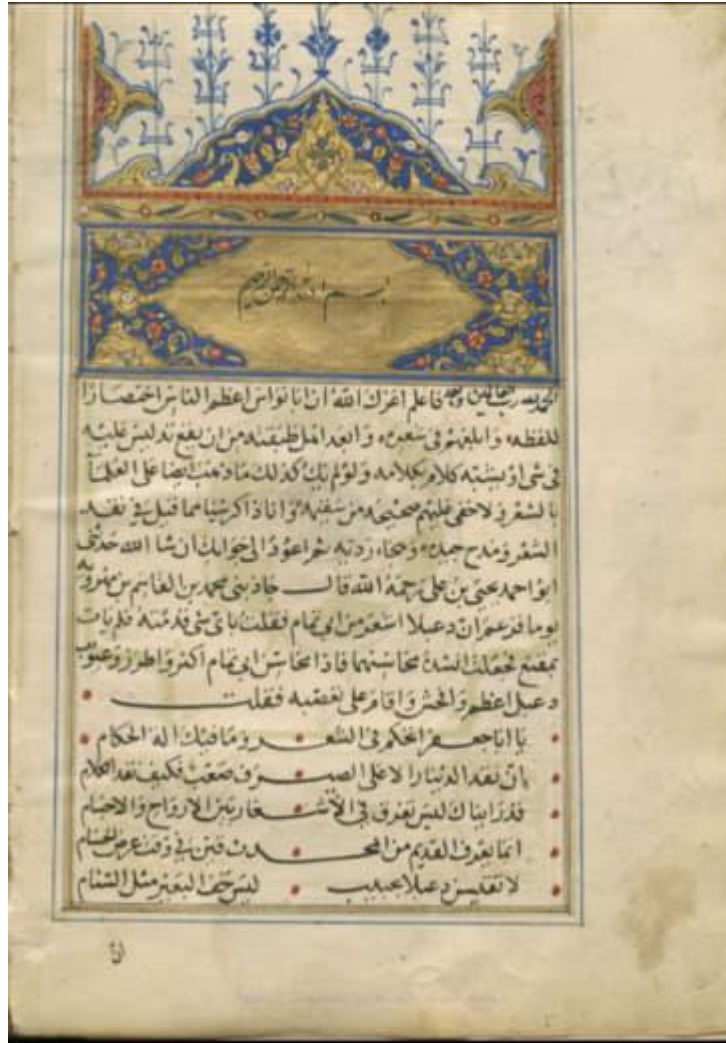 بسم الله الرحمن الرحيم
الحمد لله رب العالمين وبعد فاعلم اعزك الله ان ابا نواس اعظم الناس اختصارا
للفظه وابلغهم في شعره وابعد اهل طبقته من ان يقع تدليس عليه
في شي او يشبه كلام بكلامه ولو لم يك كذلك ما ذهب ايضا على العلما
بالشعر ولا خفى عليهم صحيحه من سقيمه وانا ذاكر شيا مما قيل في نقد
الشعر ومدح جيده وهجاء رديه ثم اعود الى جوابك ان شا الله حدثنى
ابو احمد يحيى بن على رحمة الله قال جاذبنى محمد بن القاسم بن مهرويه
يوما فزعم ان دعبلا اشعر من ابى تمام فقلت باى شى قدمته فلم يات
بمقنع فجعلت انشده محاسنهما فاذا محاسن ابى تمام اكثر واطرز وعيوب
دعبل اعظم وافحش واقام على تعصبه فقلت
يا ابا جعفر اتحكم فى الشعر وما فيك الة الحكام
ان نقد الدينار الا على الصيرف صعب فكيف نقد الكلام
قد رايناك ليس تفرق في الاشعار بين الارواح والاجسام
انما يعرف القديم من المحدث قين في وقت عرض الحسام
لا تقيس دعبلا بحبيب ليس خف البعير مثل السنام